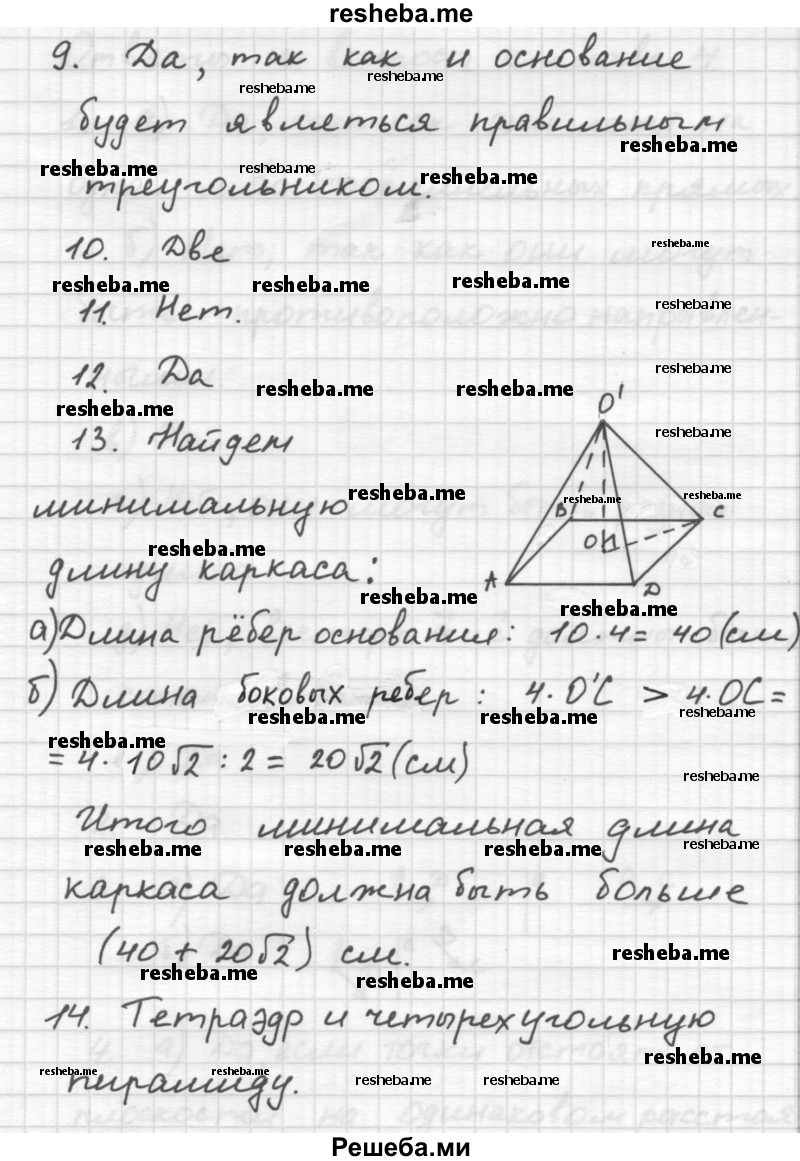 resheba.me
9. Да, так как и основание
будет являться правильным
треугольником.
10. Две
11. Нет.
12. Да
13. Найдем
минимальную
длину каркаса:
O'
B
C
O
A
D
а) Длина рёбер основания: 10·4 = 40 (см)
б) Длина боковых ребер: 4·O'C > 4·OC =
= 4·10√2 : 2 = 20√2 (см)
Итого минимальная длина
каркаса должна быть больше
(40 + 20√2) см.
14. Тетраэдр и четырехугольную
пирамиду.
Решеба.ми